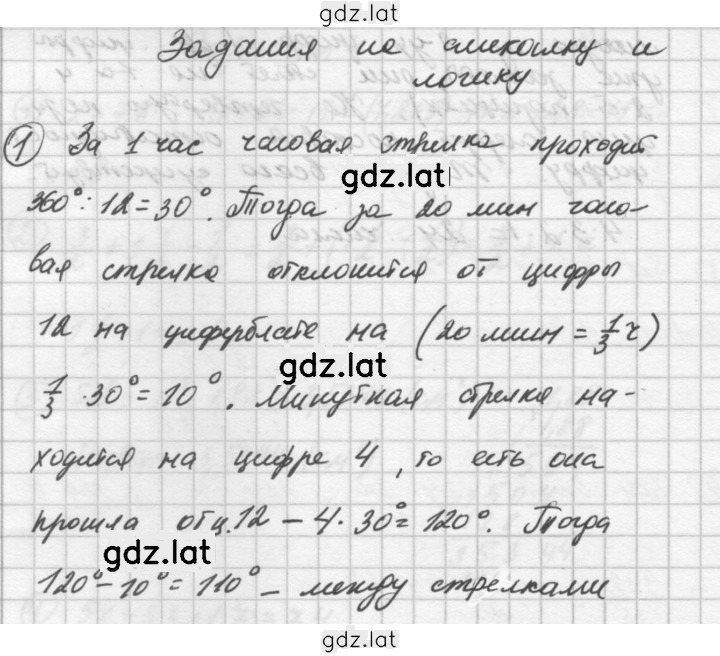 gdz.lat
Задания на смекалку и
логику
1 За 1 час часовая стрелка проходит
gdz.lat
360° : 12 = 30°. Тогда за 20 мин часо-
вая стрелка отклонится от цифры
12 на циферблате на (20 мин = 1/3 ч)
gdz.lat
1/3 · 30° = 10°. Минутная стрелка на-
ходится на цифре 4, то есть она
прошла от ц. 12 – 4 · 30° = 120°. Тогда
gdz.lat
120° – 10° = 110° – между стрелками
gdz.lat